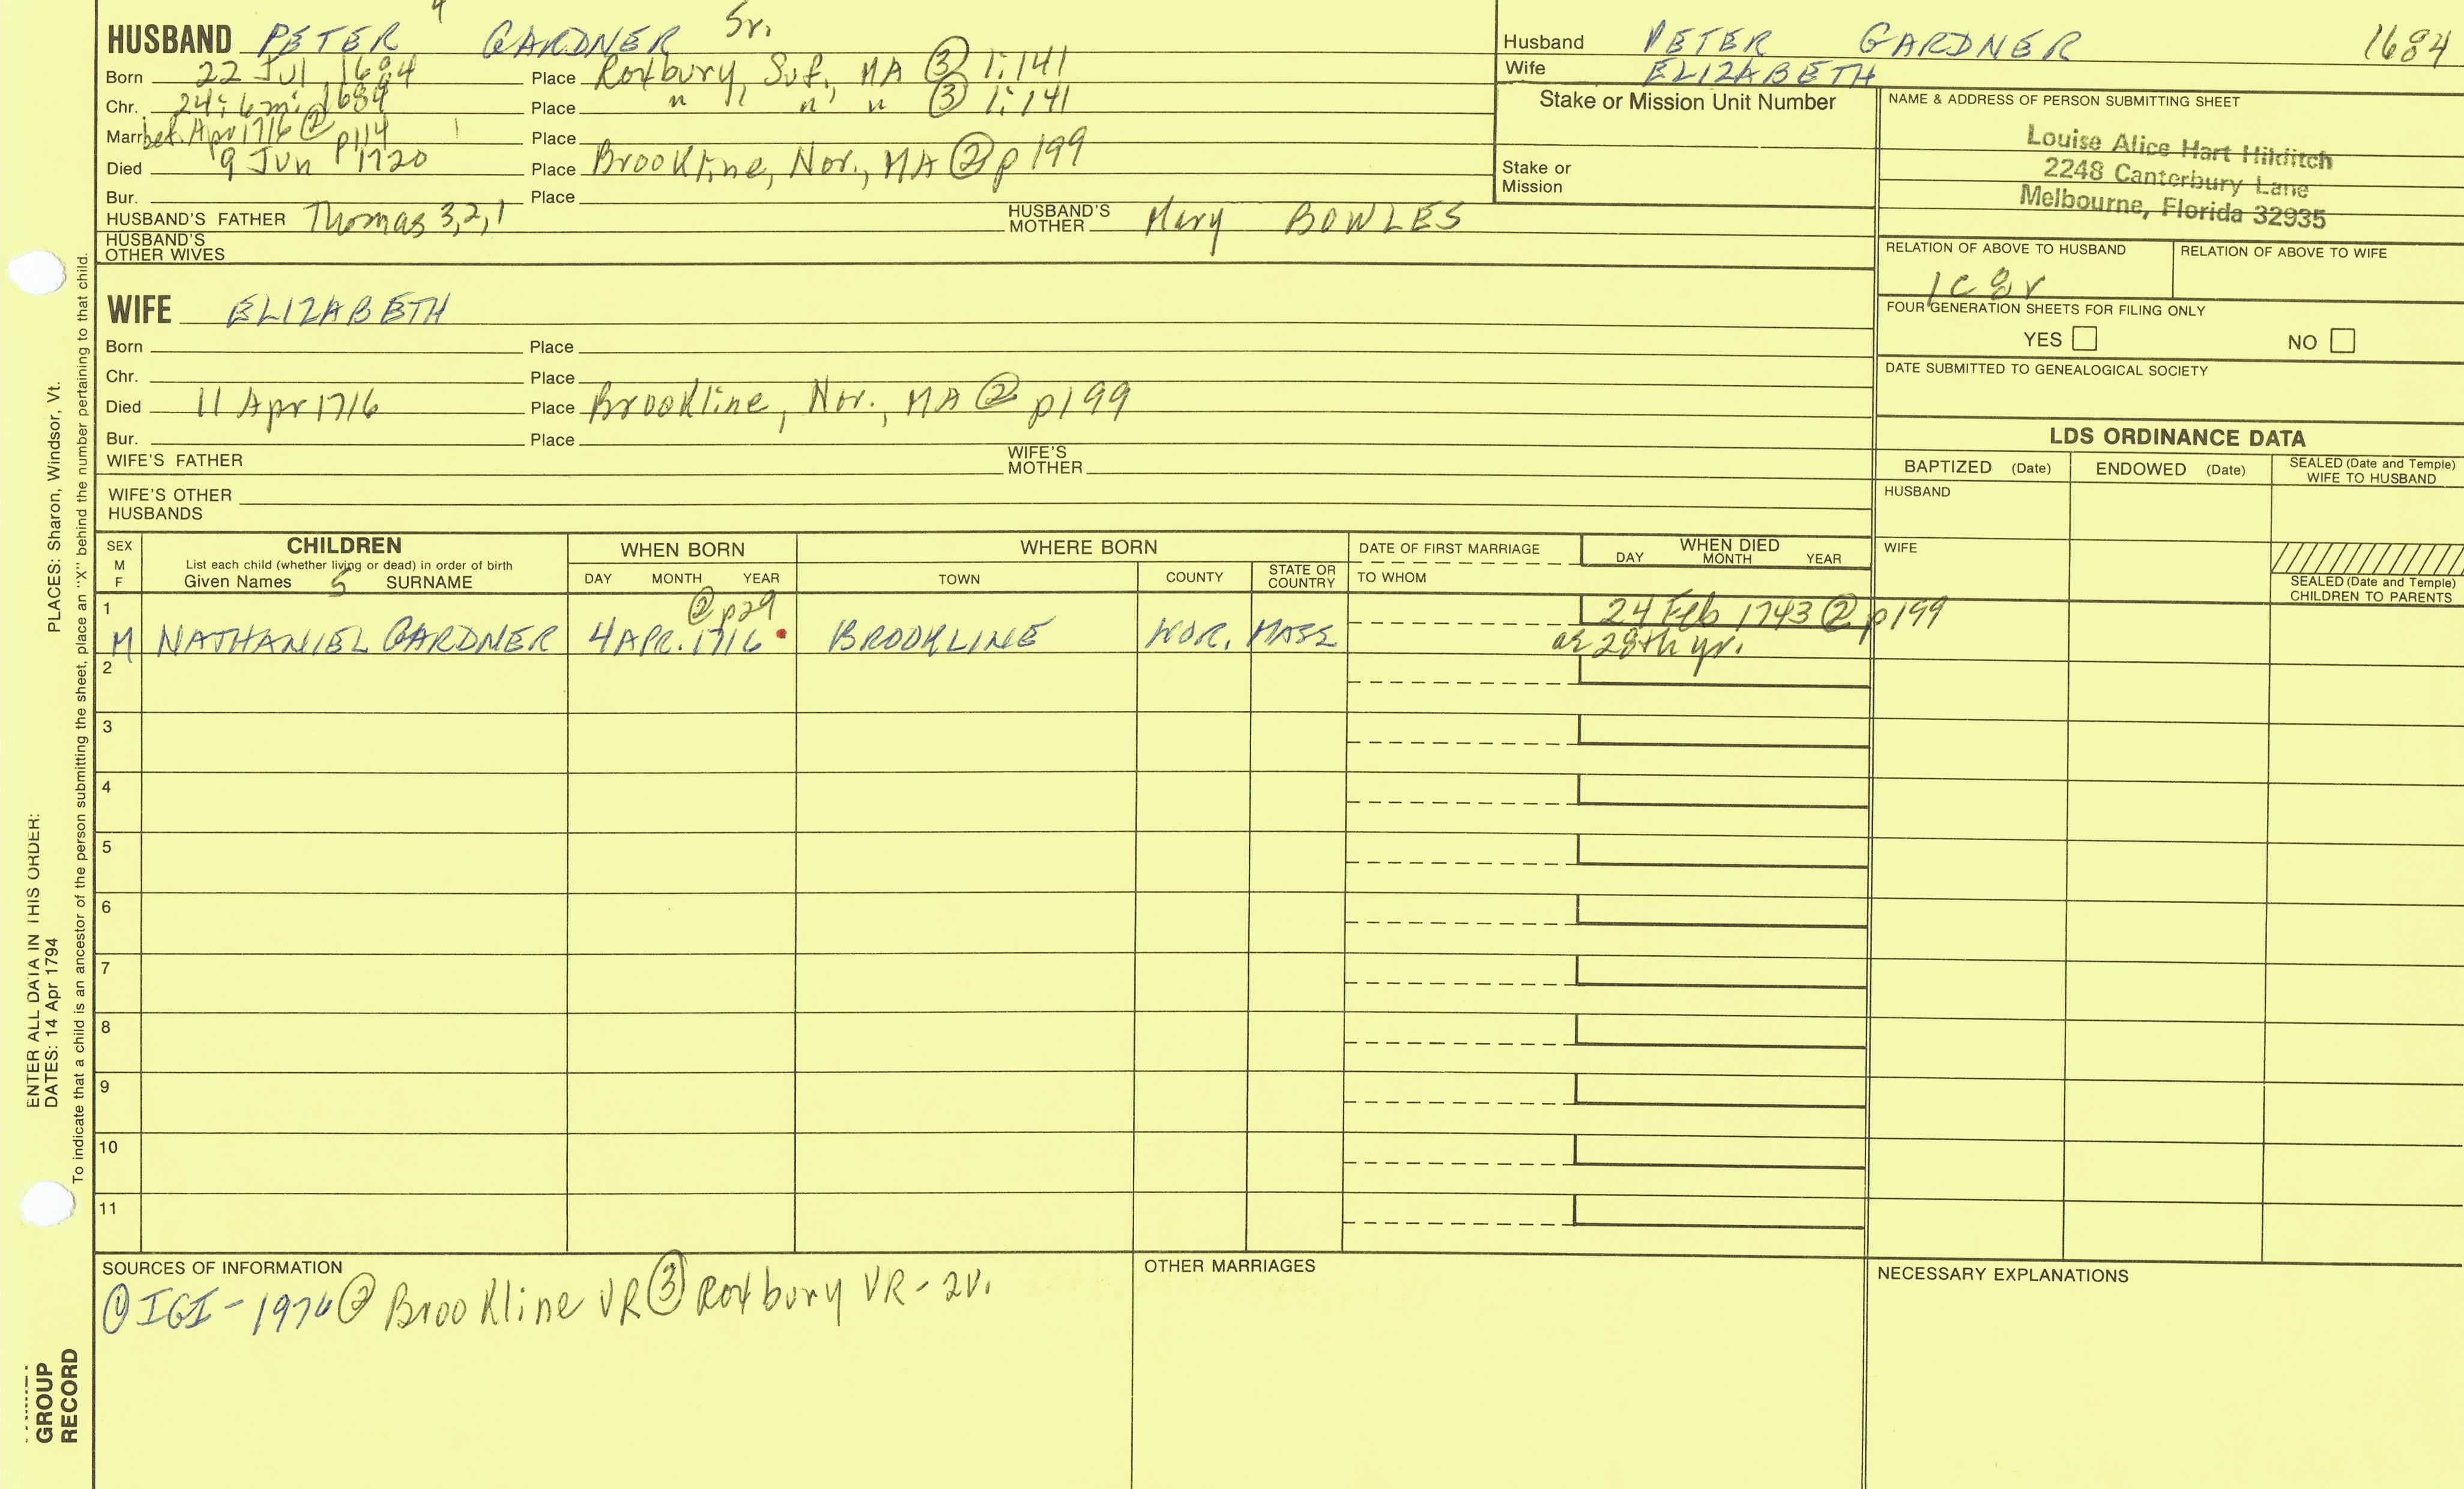 4
HUSBAND PETER GARDNER Sr.
Born 22 Jul 1684 Place Roxbury, Suf., MA ③ 1:141
Chr. 24: 6m: 1684 Place " " " " ③ 1:141
Marr bef. Apr 1716 ② p114 Place
Died 9 Jun 1720 Place Brookline, Nor., MA ② p199
Bur. Place
HUSBAND'S FATHER Thomas 3,2,1 HUSBAND'S MOTHER Mary BOWLES
HUSBAND'S OTHER WIVES
WIFE ELIZABETH
Born Place
Chr. Place
Died 11 Apr 1716 Place Brookline, Nor., MA ② p199
Bur. Place
WIFE'S FATHER WIFE'S MOTHER
WIFE'S OTHER HUSBANDS
Husband PETER GARDNER 1684
Wife ELIZABETH
Stake or Mission Unit Number
Stake or Mission
NAME & ADDRESS OF PERSON SUBMITTING SHEET
Louise Alice Hart Hilditch
2248 Canterbury Lane
Melbourne, Florida 32935
RELATION OF ABOVE TO HUSBAND RELATION OF ABOVE TO WIFE
1C8r
FOUR GENERATION SHEETS FOR FILING ONLY
YES NO
DATE SUBMITTED TO GENEALOGICAL SOCIETY
LDS ORDINANCE DATA
BAPTIZED (Date) ENDOWED (Date) SEALED (Date and Temple) WIFE TO HUSBAND
HUSBAND
WIFE
SEALED (Date and Temple) CHILDREN TO PARENTS
SEX M F
CHILDREN
List each child (whether living or dead) in order of birth
Given Names 5 SURNAME
WHEN BORN
DAY MONTH YEAR
WHERE BORN
TOWN COUNTY STATE OR COUNTRY
DATE OF FIRST MARRIAGE
TO WHOM
WHEN DIED
DAY MONTH YEAR
1 ② p29 24 Feb 1743 ② p199
M NATHANIEL GARDNER 4 APR. 1716 BROOKLINE NOR. MASS ae 28th yr.
2
3
4
5
6
7
8
9
10
11
SOURCES OF INFORMATION
① IGI - 1976 ② Brookline VR ③ Roxbury VR - 2v.
OTHER MARRIAGES
NECESSARY EXPLANATIONS
PLACES: Sharon, Windsor, Vt.
ENTER ALL DATA IN THIS ORDER:
DATES: 14 Apr 1794
To indicate that a child is an ancestor of the person submitting the sheet, place an "X" behind the number pertaining to that child.
GROUP
RECORD